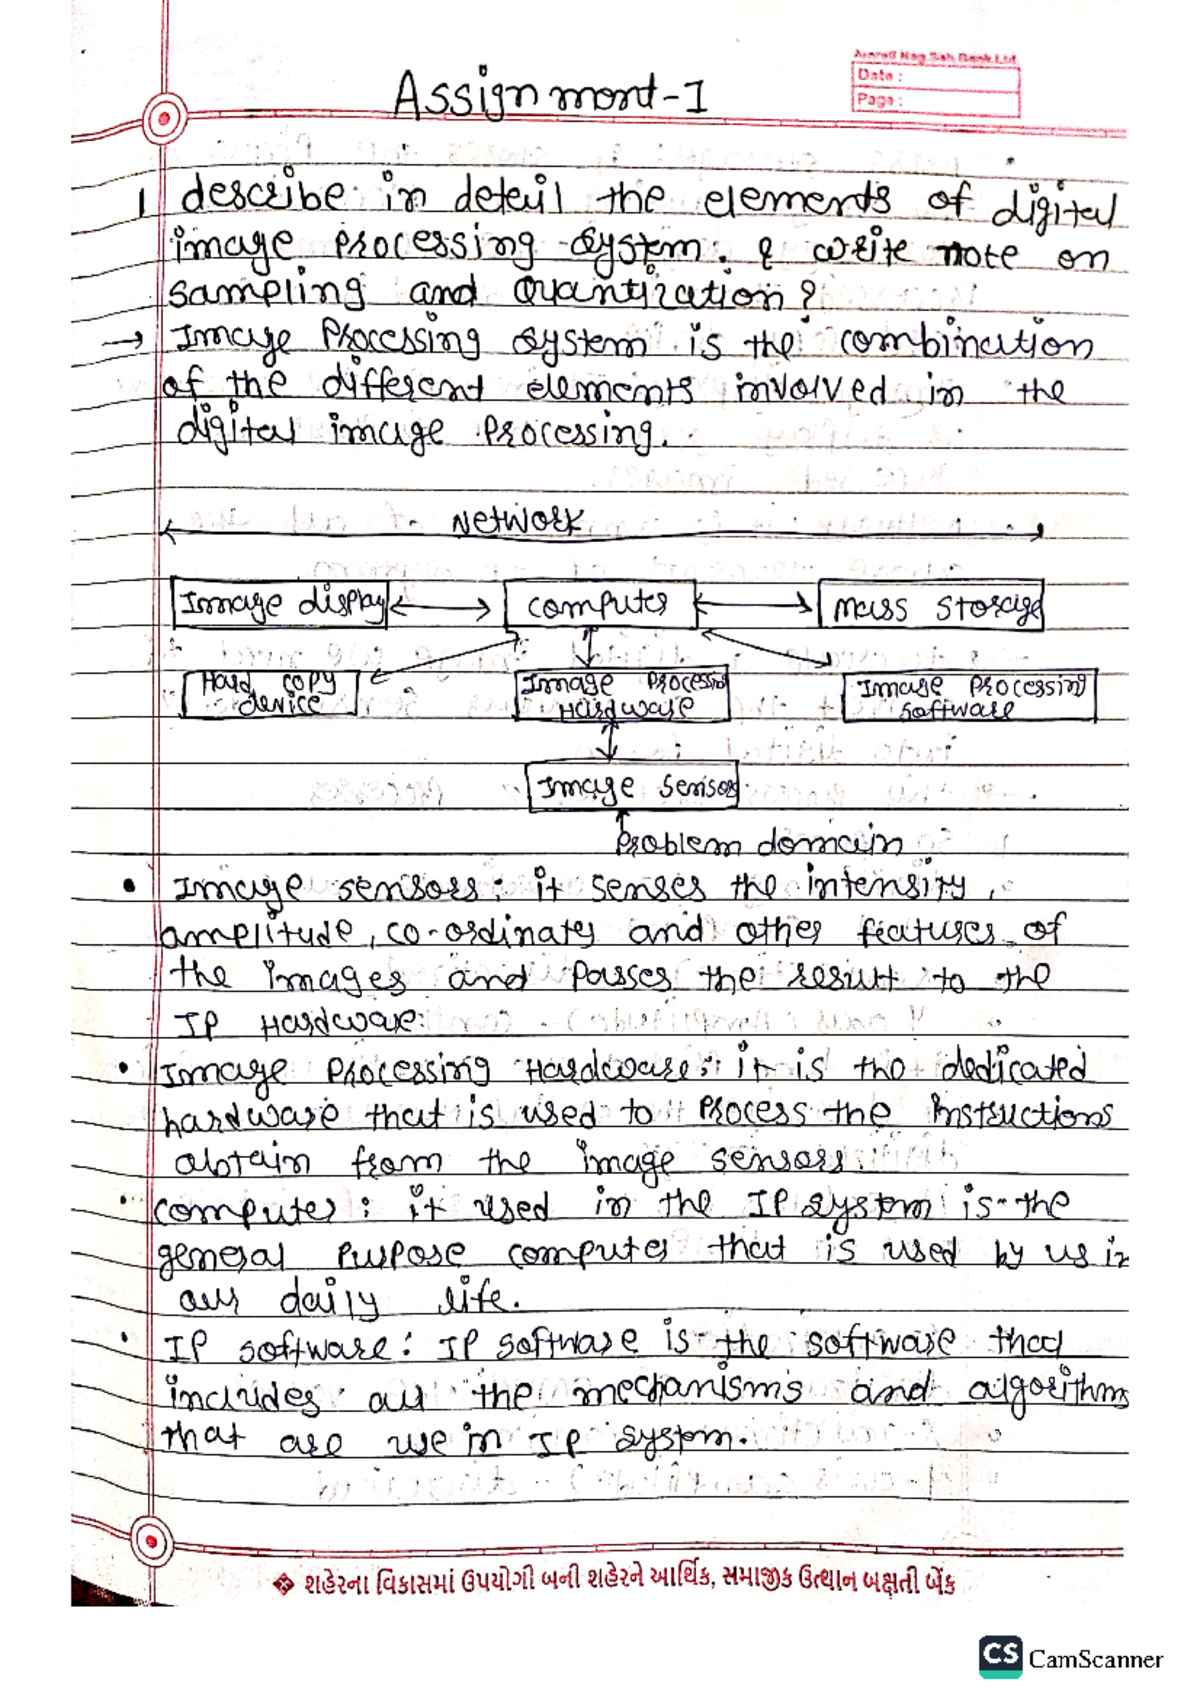 Amreli Nag. Sah. Bank Ltd
Date :
Page :
Assignmont-1
1 describe in detail the elements of digital
image processing system. & write note on
sampling and Quantization?
→ Image Processing system is the combination
of the different elements involved in the
digital image processing.
Network
Image display
computer
mass storage
Hard copy
device
Image processing
Hardware
Image processing
software
Image sensor
Problem domain
• Image sensors: it senses the intensity,
amplitude, co-ordinates and other features of
the images and passes the result to the
IP Hardware.
• Image processing Hardware: it is the dedicated
hardware that is used to process the instructions
obtain from the image sensors.
• computer: it used in the IP system is the
general purpose computer that is used by us in
our daily life.
• IP software: IP software is the software that
includes all the mechanisms and algorithms
that are use in IP system.
શહેરના વિકાસમાં ઉપયોગી બની શહેરને આર્થિક, સમાજીક ઉત્થાન બક્ષતી બેંક
CS CamScanner